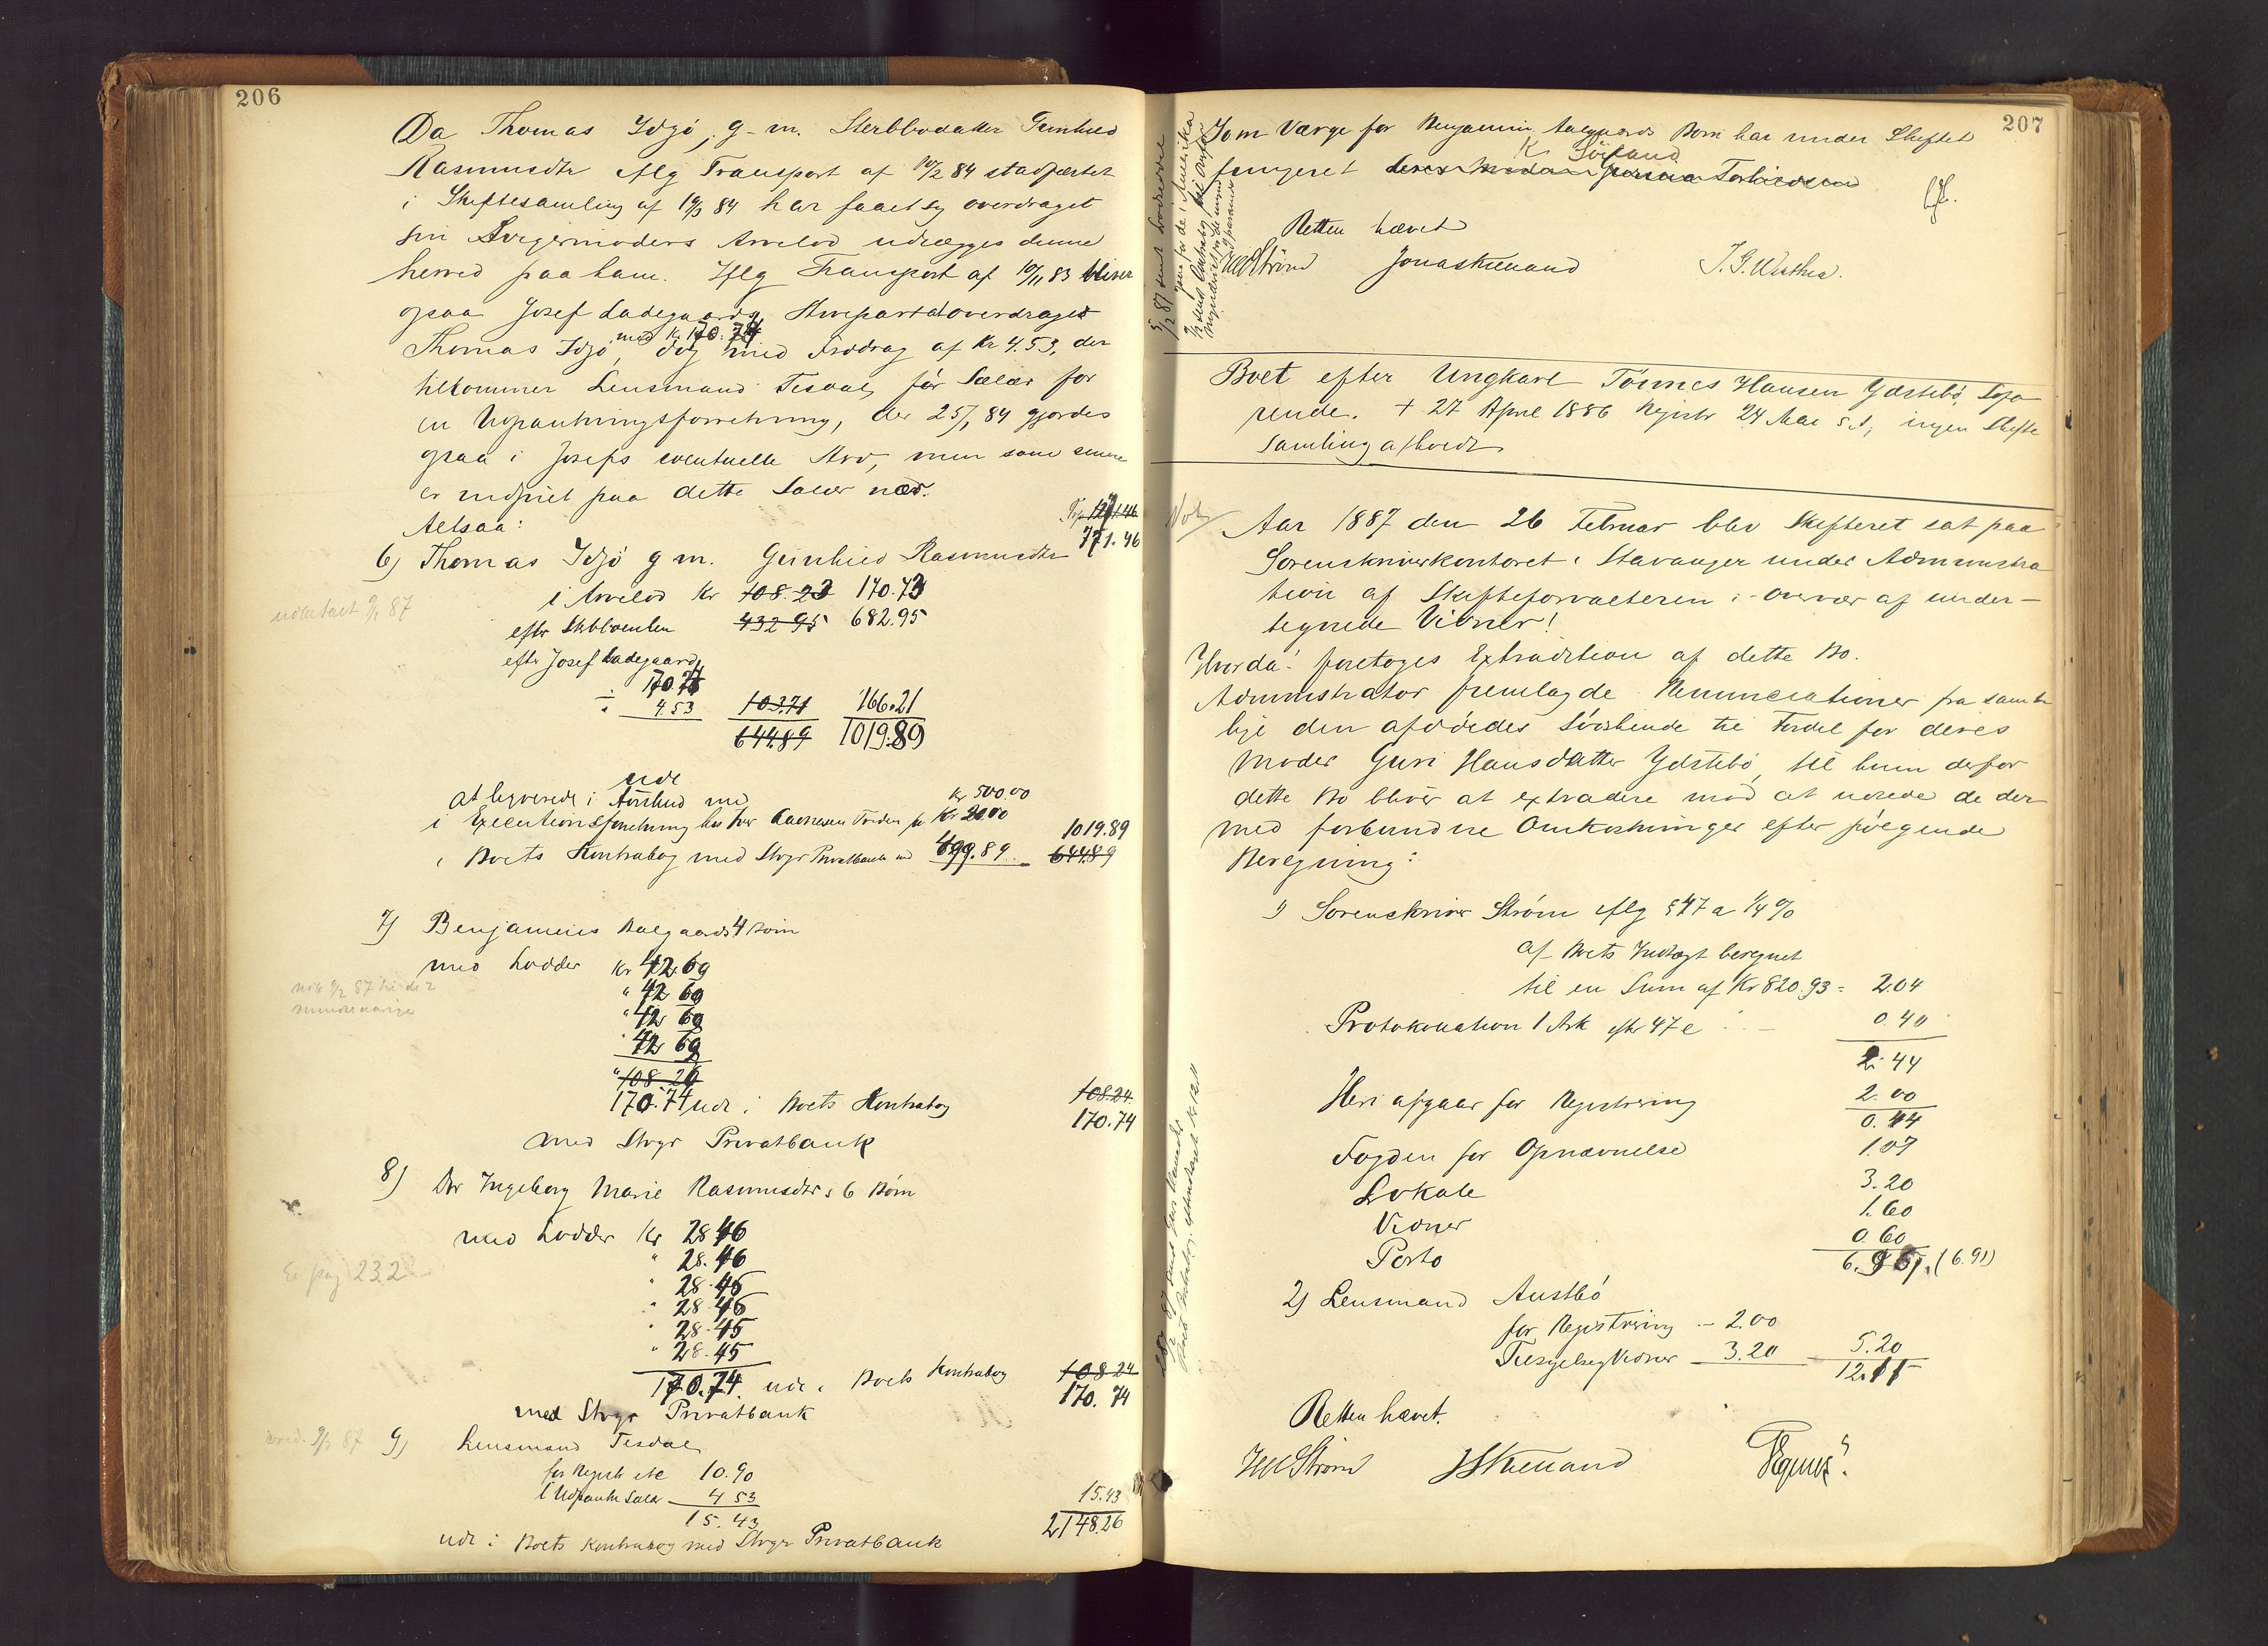 206
Da Thomas Idsö, g. m. Sterbbodatter Gunhild
Rasmusdtr iflg Transport af 10/2 84 stadfæstet
i Skiftesamling af 19/3 84 har faaet sig overdraget
sin Svigermoders Arvelod udlægges denne
herved paa ham. Iflg Transport af 10/11 83 bliver
ogsaa Josef Ladegaards Arvepart at overdraget
med Kr 170.74
Thomas Idsö, dog med Fradrag af Kr 4.53, der
tilkommer Lensmand Tesdal for Salær for
en Udpantningsforretning, der 25/1 84 gjordes
ogsaa i Josefs eventuelle Arv, men som senere
er indfriet paa dette Salær nær.
Altsaa:
771.46
6) Thomas Idsö g m. Gunhild Rasmusdtr
i Arvelod Kr 108.23 170.73
efter Stbboenken 432 95 682.95
udbetalt 9/2 87
efter Josef Ladegaard
170 74
÷ 4.53 103.71 166.21
644.89 1019.89
at hæverede i
ude
Kr 500.00
i Executionsforretning hos Kr 20.00
1019.89
i Boets Kontrabog med Stvgr Privatbank md 499.89 644.89
7) Benjamins Aalgaards 4 Börn
med Lodder Kr 42 69
" 42 69
" 42 69
" 42 69
" 108 24
170.74 udl i Boets Kontrabog
108.24
170.74
med Stvgr Privatbank
8) Dv Ingeborg Marie Rasmusdtrs 6 Börn
med Lodder Kr 28 46
" 28.46
" 28.46
" 28.46
" 28.45
" 28.45
Se pag 232
170.74 udl. i Boets Kontrabog
108 24
170.74
med Stvgr Privatbank
9) Lensmand Tesdal
for Registr etc 10.90
i Udpantn Salær 4 53
15.43
15.43
2148.26
udl i Boets Kontrabog med Stvgr Privatbank
207
Som Værge for Benjamin Aalgaards Børn har under Skiftet
K Söiland
fungeret deres
Retten hævet
WStröm Jonas Kielland
Boet efter Ungkarl Tönnes Hansen Ydstebö, Sjø
rende. + 27 April 1886 Registr 24 Mai s.A., ingen Skifte
samling afholdt
Aar 1887 den 26 Februar blev Skifteret sat paa
Sorenskriverkontoret i Stavanger under Administra
tion af Skifteforvalteren i Overvær af under-
tegnede Vidner!
Hvorda: foretoges Extradition af dette Bo.
Administrator fremlagde Renunciationer fra samt
lige den afdödes Södskende til Fordel for deres
Moder Guri Hansdatter Ydstebö, til hvem derfor
dette Bo bliver at extradere mod at udrede de der
med forbundne Omkostninger efter følgende
Beregning:
1) Sorenskriver Ström iflg § 47 a 1/4 %
af Boets Indtægt beregnet
til en Sum af Kr 820.93 = 2.04
Protokollation 1 Ark eftr 47 e - 0.40
2.44
Heri afgaar for Registrering 2.00
0.44
Fogden for Opnævnelse 1.07
Lokale 3.20
Vidner 1.60
Porto 0.60
6.91. (6.91)
2) Lensmand Austbö
for Registrering - 2.00
Tilsigelse Vidner 3.20 5.20
12.11
Retten hævet.
WStröm JKielland